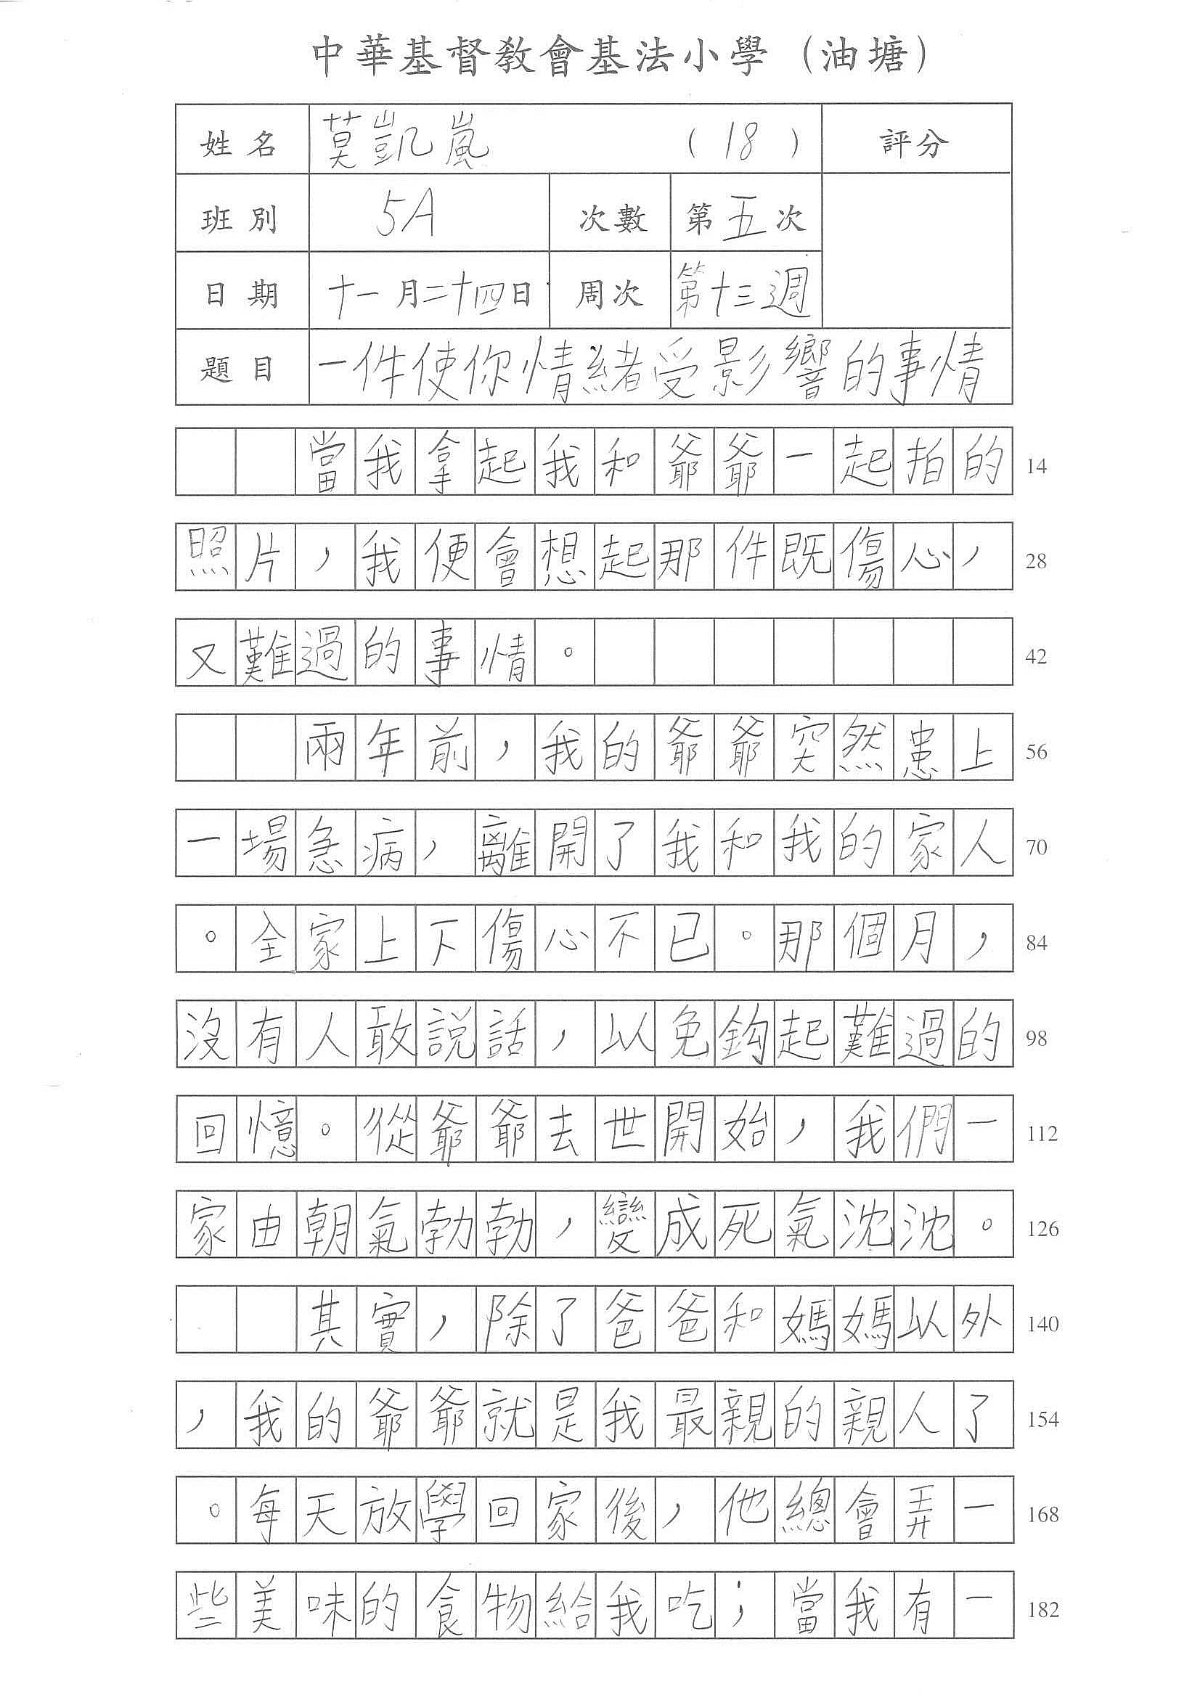 中華基督教會基法小學（油塘）
姓名 莫凱嵐 （18） 評分
班別 5A 次數 第五次
日期 十一月二十四日 周次 第十三週
題目 一件使你情緒受影響的事情
當我拿起我和爺爺一起拍的 14
照片，我便會想起那件既傷心， 28
又難過的事情。 42
兩年前，我的爺爺突然患上 56
一場急病，離開了我和我的家人 70
。全家上下傷心不已。那個月， 84
沒有人敢說話，以免鈎起難過的 98
回憶。從爺爺去世開始，我們一 112
家由朝氣勃勃，變成死氣沈沈。 126
其實，除了爸爸和媽媽以外 140
，我的爺爺就是我最親的親人了 154
。每天放學回家後，他總會弄一 168
些美味的食物給我吃；當我有一 182